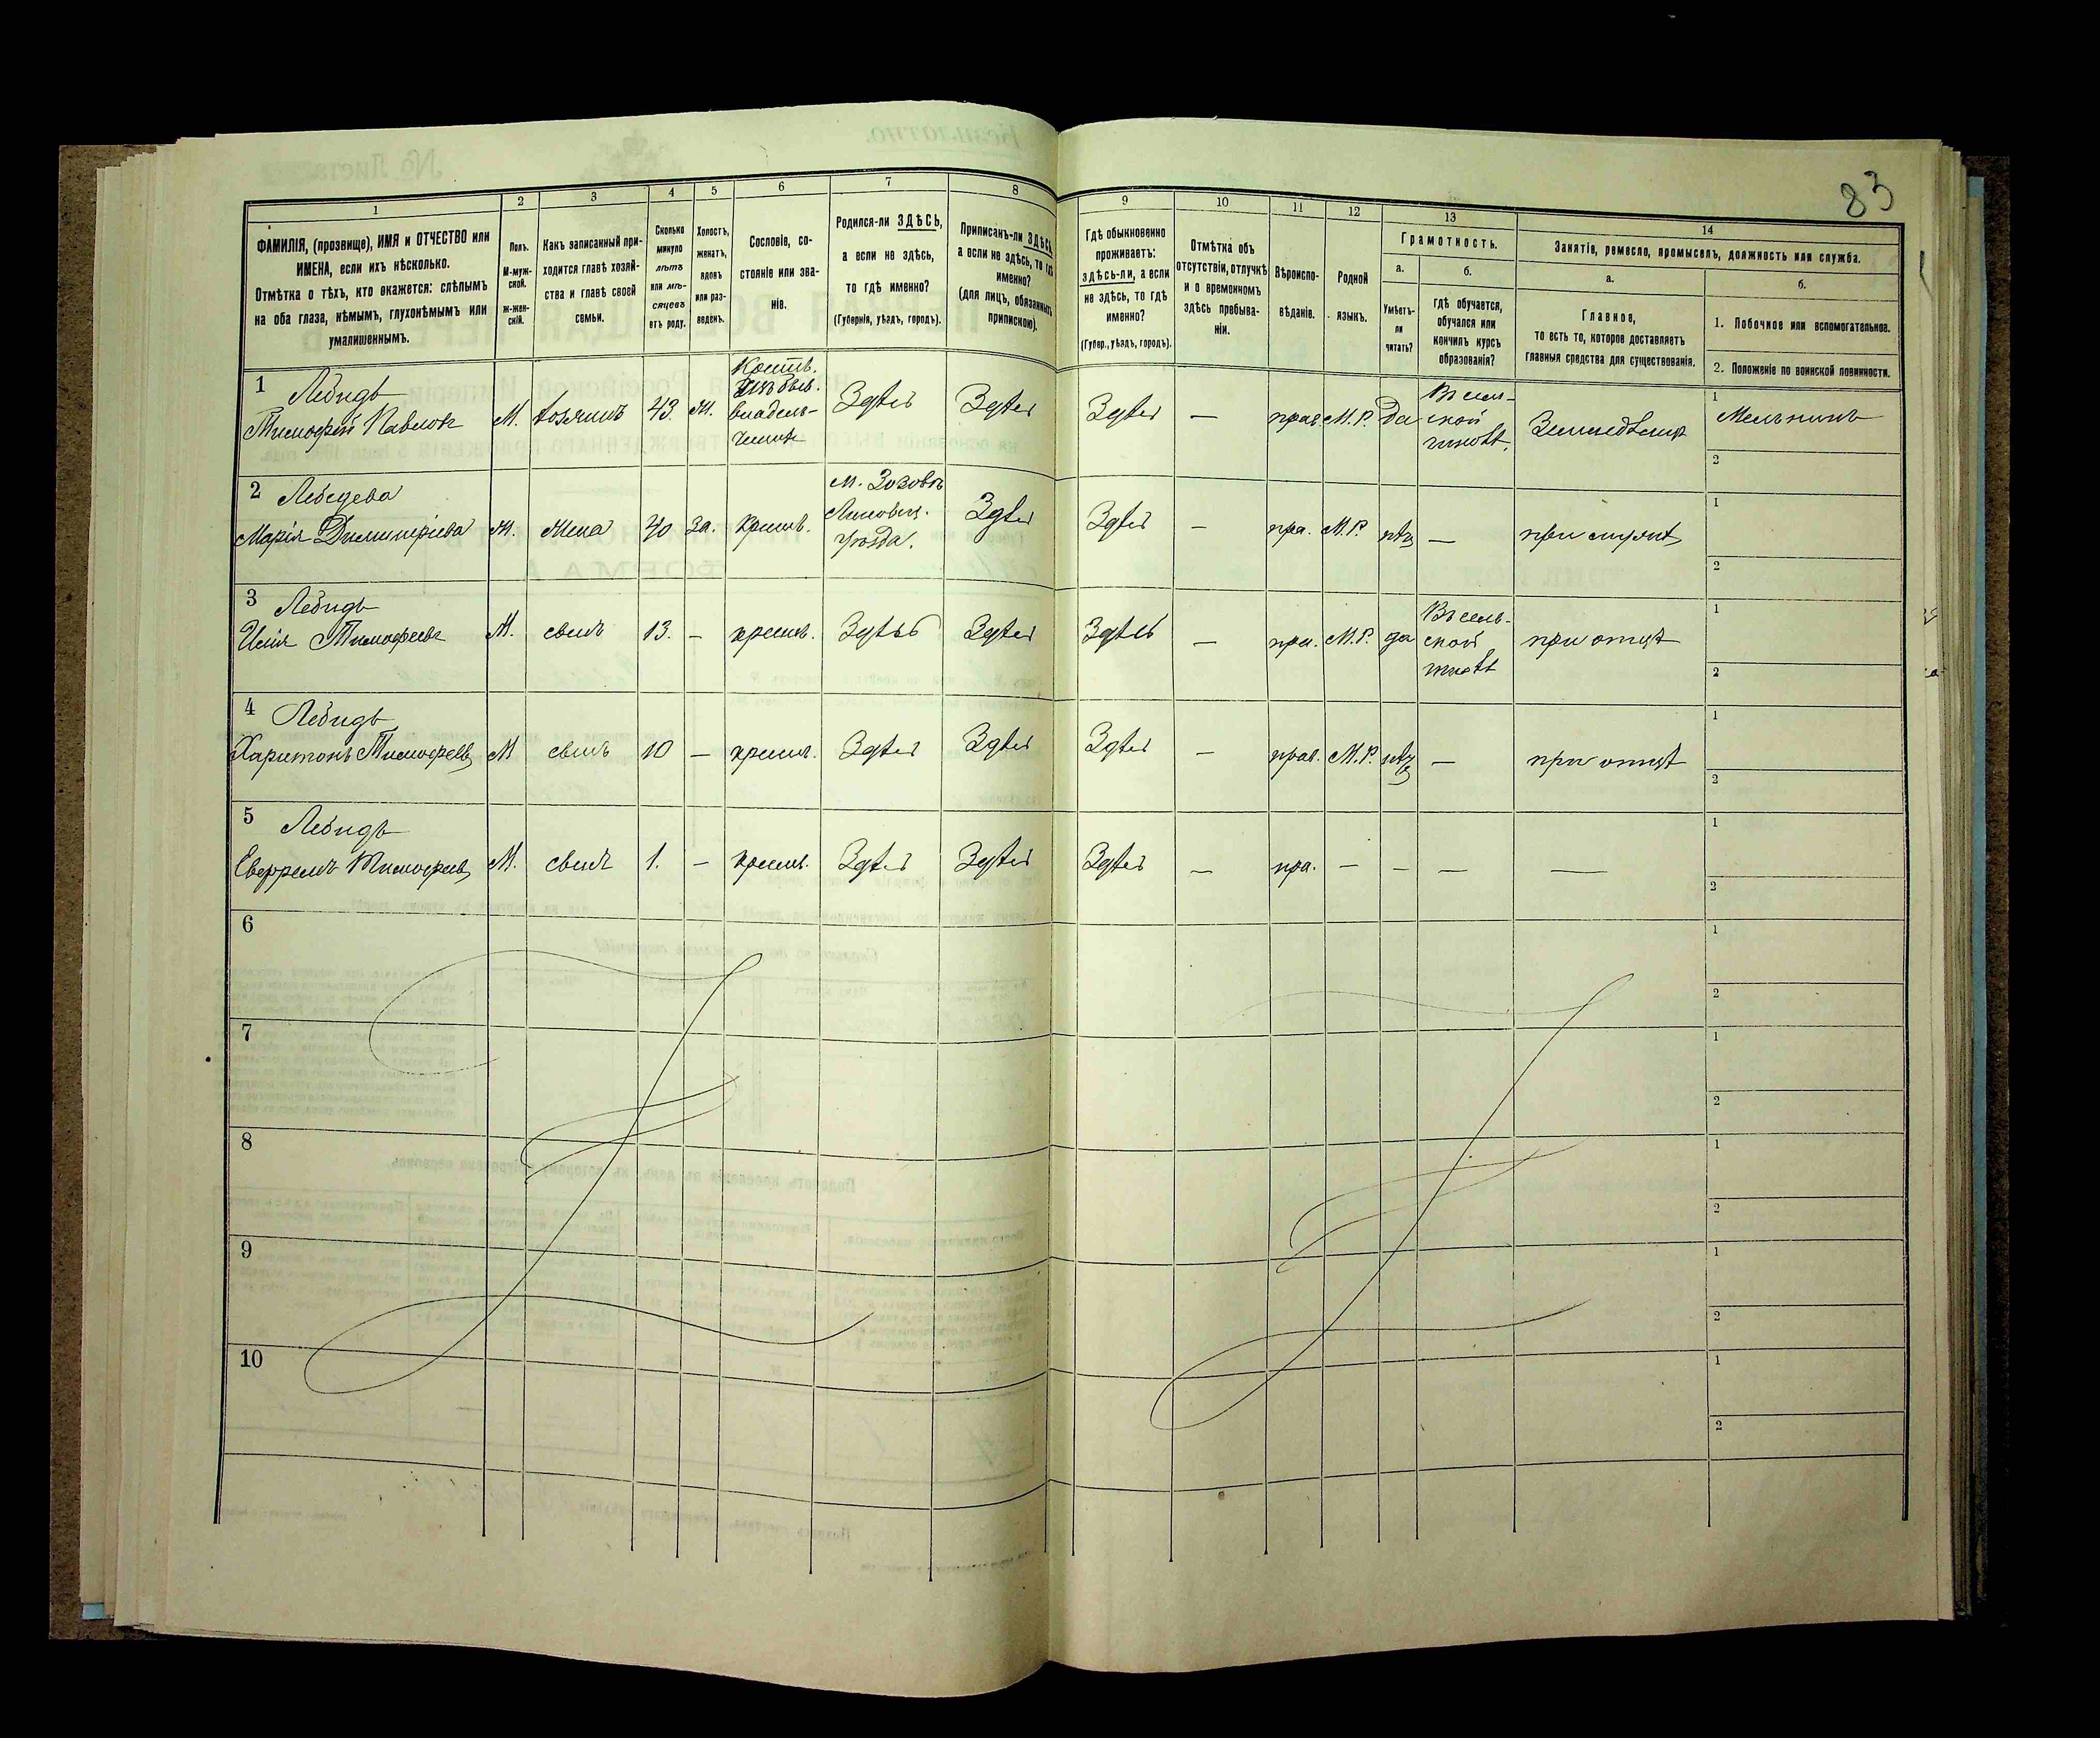 83
1
2
3
4
5
6
7
8
9
10
11
12
13
14
ФАМИЛІЯ, (прозвище), ИМЯ и ОТЧЕСТВО или
ИМЕНА, если ихъ нѣсколько.
Отмѣтка о тѣхъ, кто окажется: слѣпымъ
на оба глаза, нѣмымъ, глухонѣмымъ или
умалишеннымъ.
Полъ.
М-муж-
ской.
Ж-жен-
скій.
Какъ записанный при-
ходится главѣ хозяй-
ства и главѣ своей
семьи.
Сколько
минуло
лѣтъ
или мѣ-
сяцевъ
отъ роду.
Холостъ,
женатъ,
вдовъ
или раз-
веденъ.
Сословіе, со-
стояніе или зва-
ніе.
Родился-ли ЗДѢСЬ,
а если не здѣсь,
то гдѣ именно?
(Губернія, уѣздъ, городъ).
Приписанъ-ли ЗДѢСЬ,
а если не здѣсь, то гдѣ
именно?
(для лицъ, обязанныхъ
припискою).
Гдѣ обыкновенно
проживаетъ:
здѣсь-ли, а если
не здѣсь, то гдѣ
именно?
(Губер., уѣздъ, городъ).
Отмѣтка объ
отсутствіи, отлучкѣ
и о временномъ
здѣсь пребыва-
ніи.
Вѣроиспо-
вѣданіе.
Родной
языкъ.
Грамотность.
а.
Умѣетъ-
ли
читать?
б.
гдѣ обучается,
обучался или
кончилъ курсъ
образованія?
Занятіе, ремесло, промыселъ, должность или служба.
а.
Главное,
то есть то, которое доставляетъ
главныя средства для существованія.
б.
1. Побочное или вспомогательное.
2. Положеніе по воинской повинности.
1 Лебидь
Тимофей Павловъ М. хозяинъ 43. ж.
Крест.
изъ быв.
владѣль-
ческихъ
Здѣсь Здѣсь Здѣсь — прав. М.Р. да
Въ сель-
ской
школѣ.
Земледѣліе
1 Мельникъ
2
2 Лебедева
Марія Димитріева ж. жена 40 за. крест.
м.
уѣзда.
Здѣсь Здѣсь — пра. М.Р. нѣтъ — при мужѣ
1
2
3 Лебидь
Илія Тимофеевъ М. сынъ 13. — крест. Здѣсь Здѣсь Здѣсь — пра. М.Р. да
Въ сель-
ской
школѣ
при отцѣ
1
2
4 Лебидь
Харитонъ Тимофеевъ М сынъ 10 — крест. Здѣсь Здѣсь Здѣсь — прав. М.Р. нѣтъ — при отцѣ
1
2
5 Лебидь
Тимофеевъ М. сынъ 1. — крест. Здѣсь Здѣсь Здѣсь — пра. — — — —
1
2
6
1
2
7
1
2
8
1
2
9
1
2
10
1
2